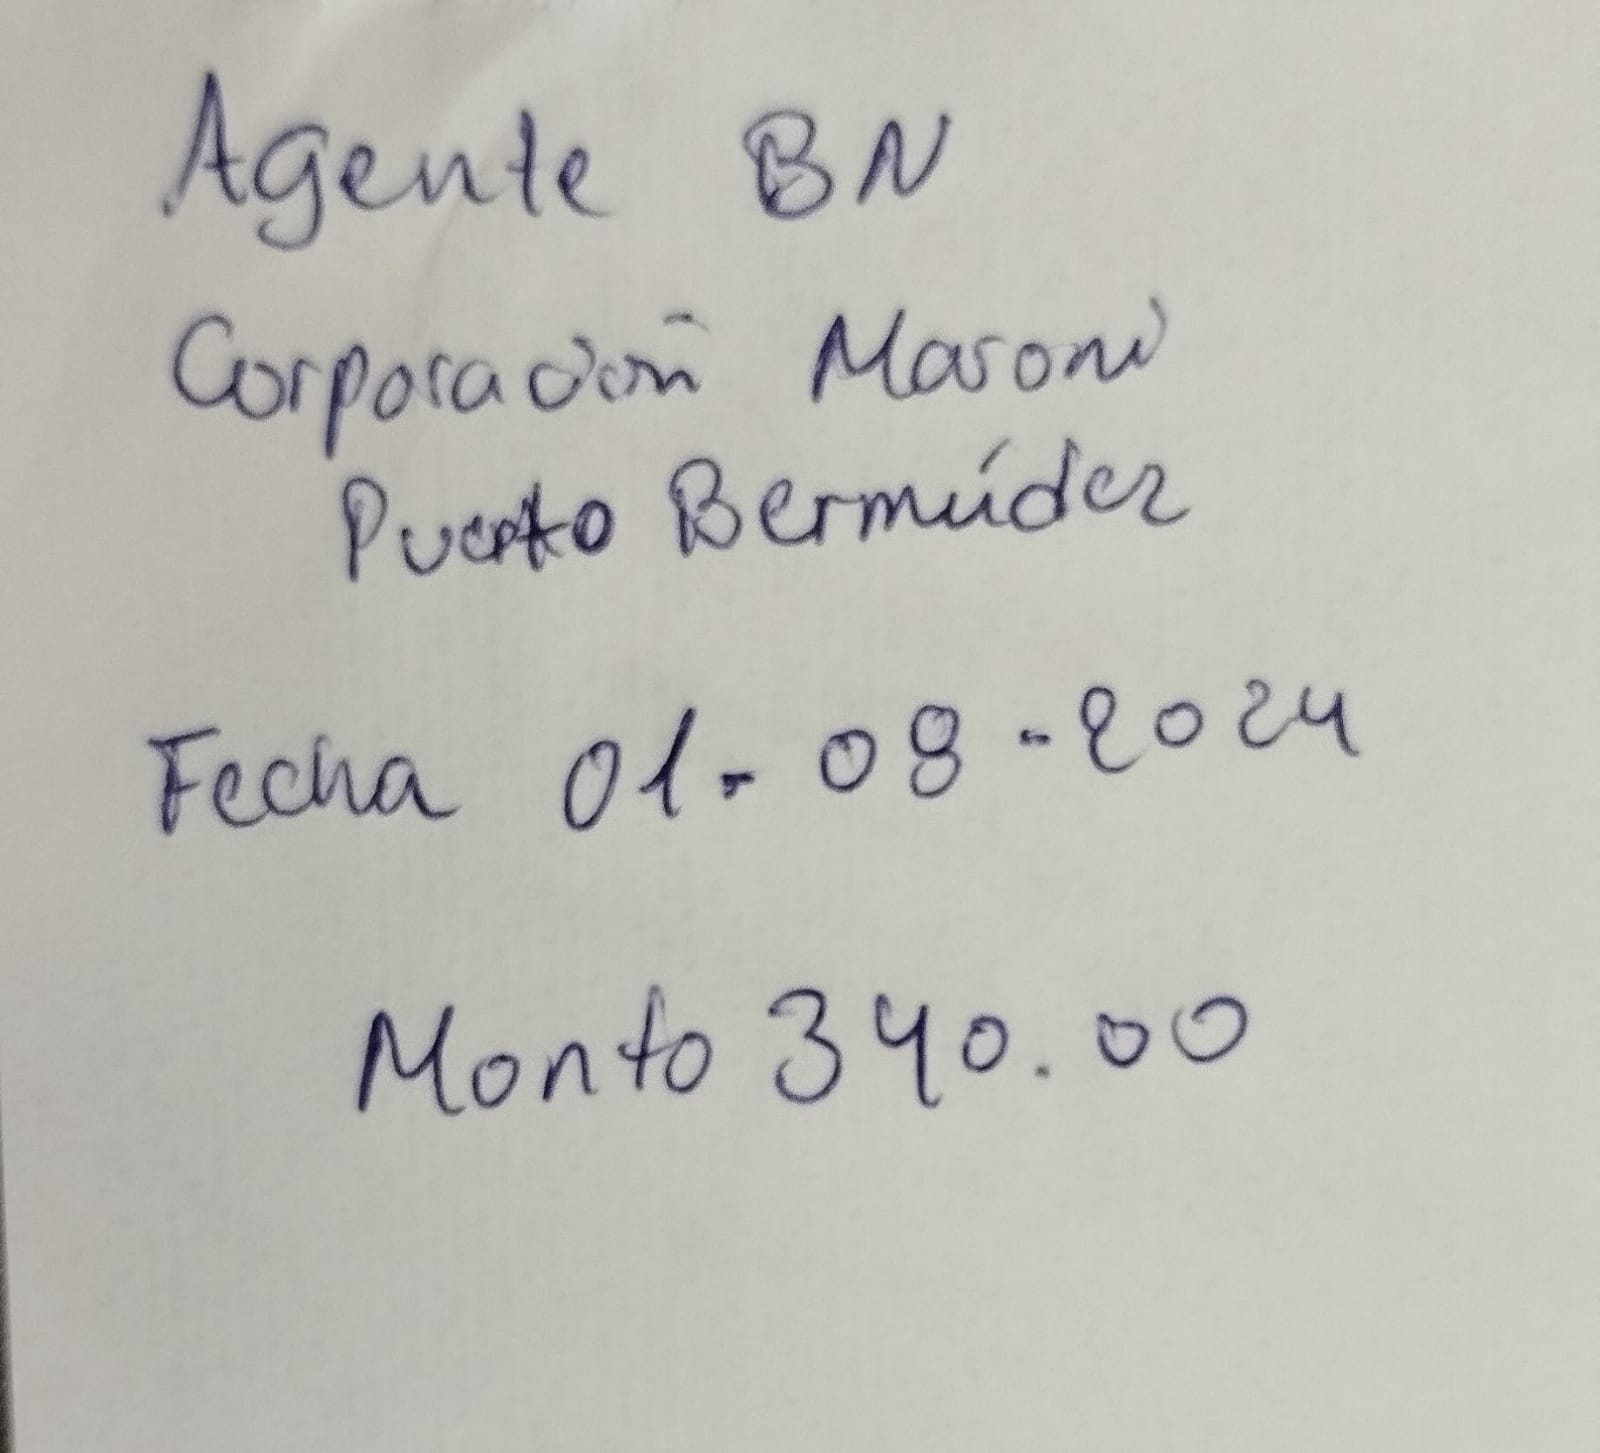 Agente BN
Corporación Masoni
Puerto Bermúdez
Fecha 01-08-2024
Monto 340.00